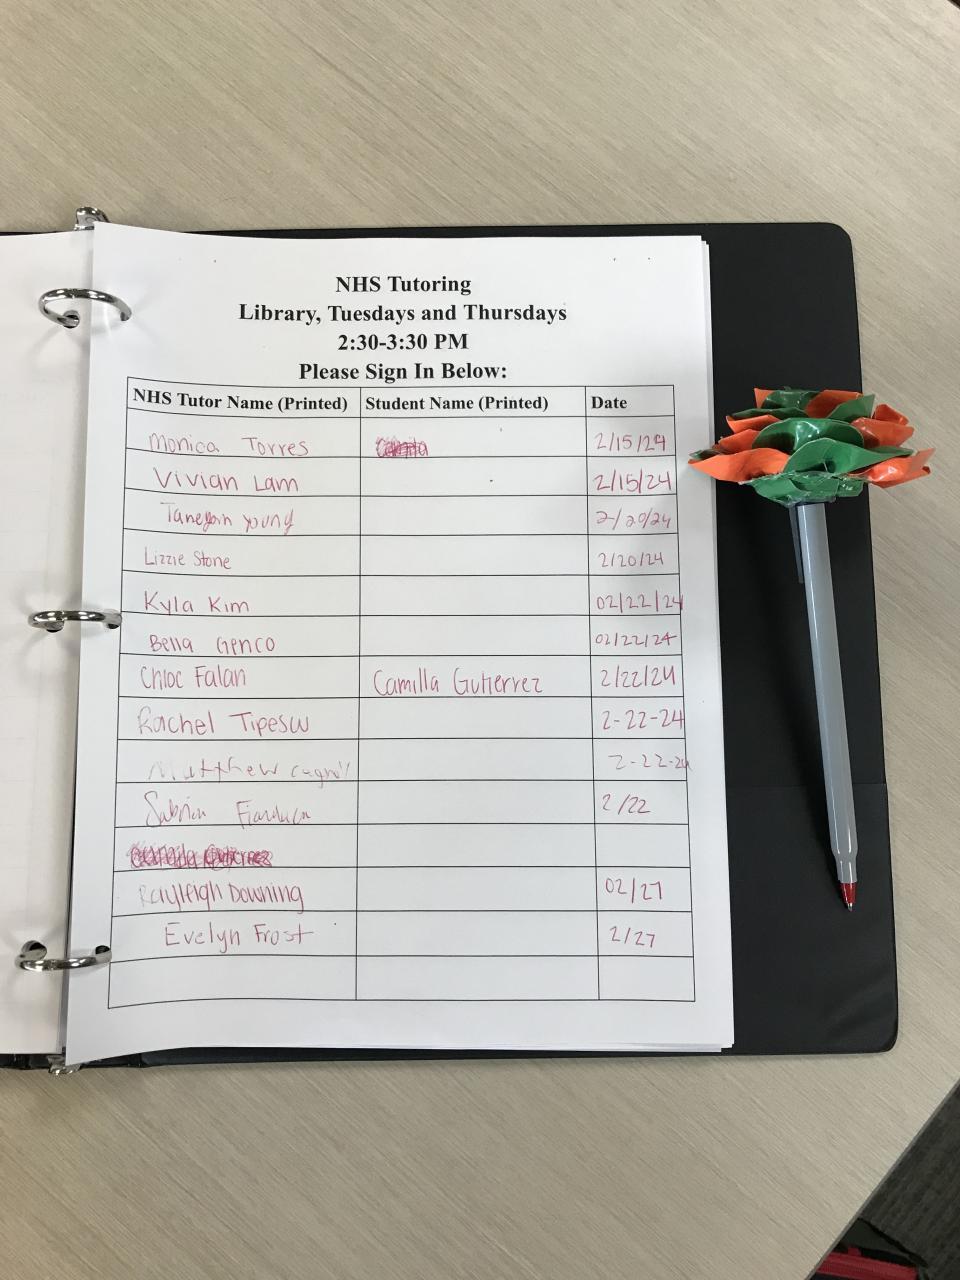 NHS Tutoring
Library, Tuesdays and Thursdays
2:30-3:30 PM
Please Sign In Below:
NHS Tutor Name (Printed) Student Name (Printed) Date
Monica Torres 2/15/24
Vivian Lam 2/15/24
Young 2/20/24
Lizzie Stone 2/20/24
Kyla Kim 02/22/24
Bella Genco 02/22/24
Chloe Falan Camilla Gutierrez 2/22/24
Rachel 2-22-24
Matthew 2-22-24
Sabrina 2/22
Rayleigh Downing 02/27
Evelyn Frost 2/27